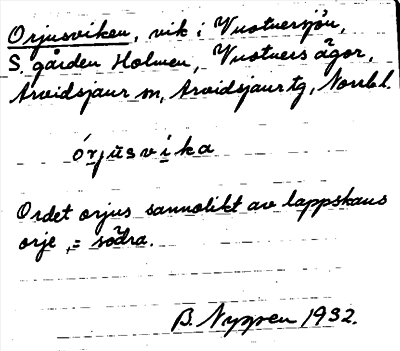 Orjusviken, vik i Vuotnersjön,
S. gården Holmen, Vuotners ägor,
Arvidsjaur sn, Arvidsjaur tg, Norrb. l.
órjusvika
Ordet orjus sannolikt av lappskans
orje, = södra.
B. Nyppen 1932.